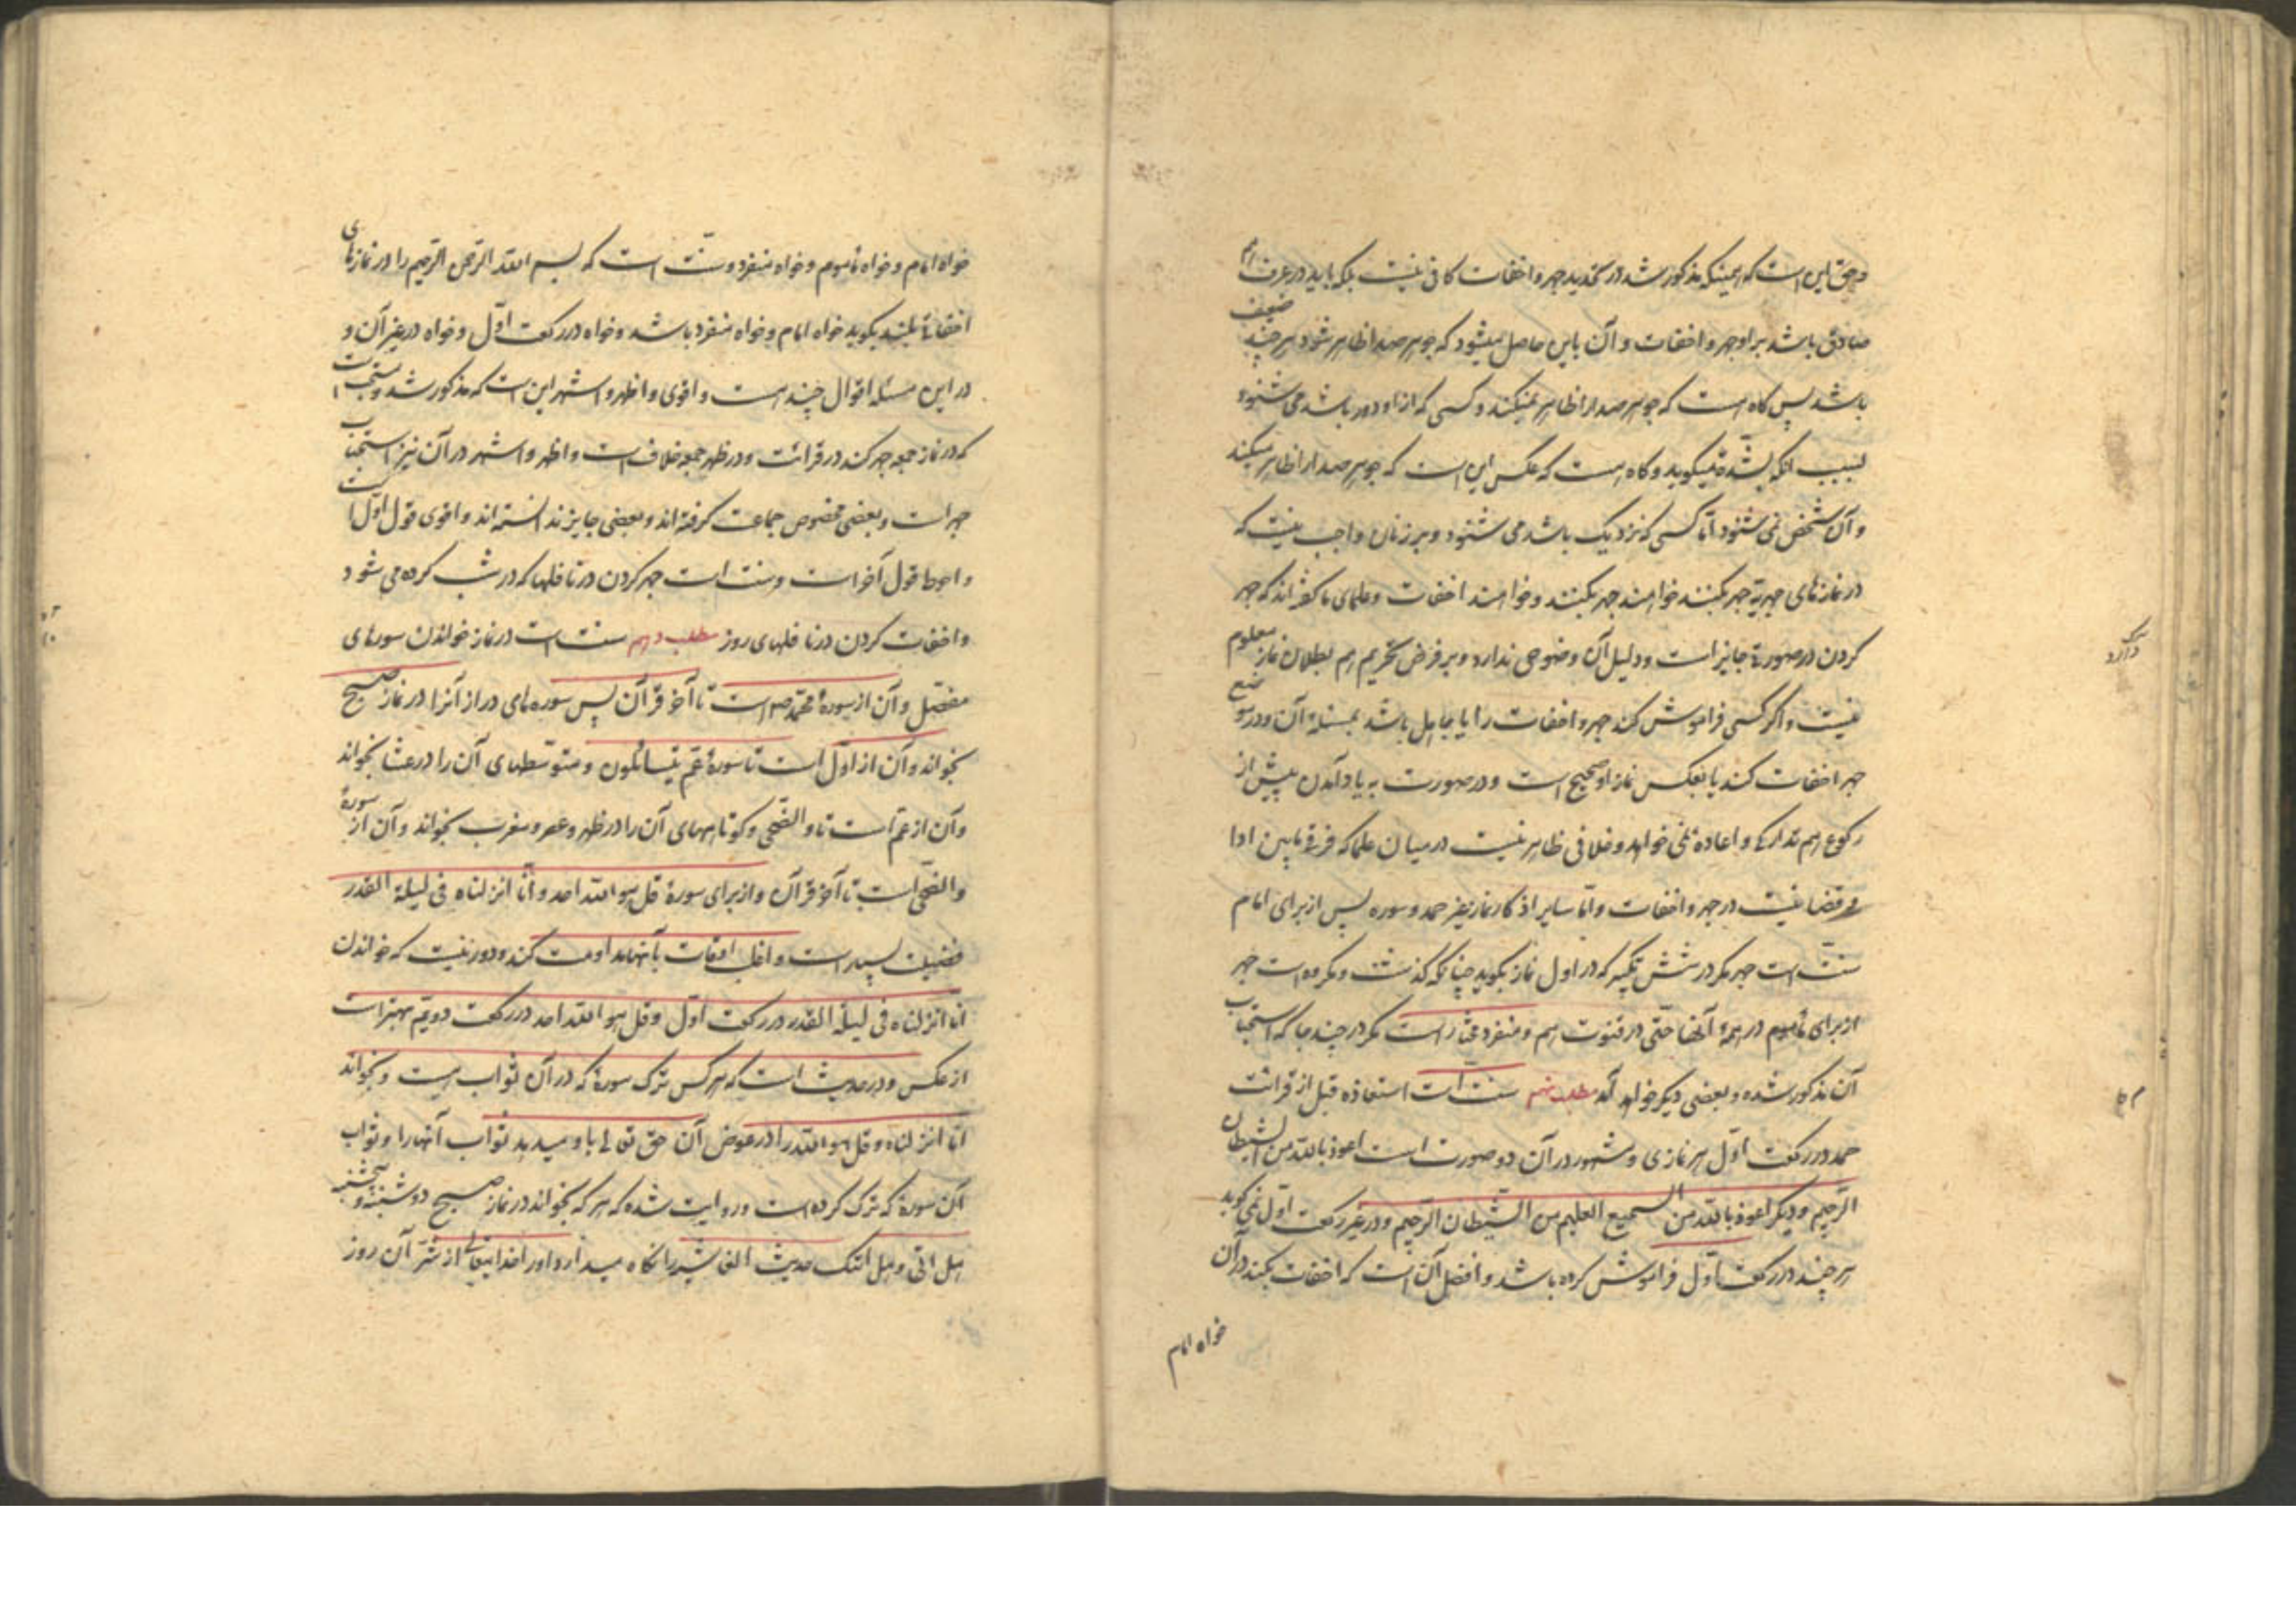 و حق این است که اینکه مذکور شد در تحدید جهر و اخفات کافی نیست بلکه باید در عرف هم
صادق باشد بر او جهر و اخفات و آن باین حاصل میشود که جوهر صدا ظاهر شود هر چند ضعیف
باشد پس گاه است که جوهر صدا را ظاهر نمیکند و کسی که از او دور باشد می شنود
بسبب انکه بشدة میگوید و گاه است که عکس این است که جوهر صدا را ظاهر میکند
و آن شخص نمی شنود امّا کسی که نزدیک باشد می شنود و بر زنان واجب نیست که
در نمازهای جهریّه جهر بکنند خواهند جهر بکنند و خواهند اخفات و علمای ما گفته اند که جهر
کردن در صورة جایز است و دلیل آن وضوحی ندارد و بر فرض تحریم هم بطلان نماز معلوم
نیست و اگر کسی فراموش کند جهر و اخفات را یا جاهل باشد بمسئلهٔ آن و در موضع
جهر اخفات کند یا بعکس نماز او صحیح است و در صورت به یاد آمدن پیش از
رکوع هم تدارک و اعاده نمی خواهد و خلافی ظاهر نیست در میان علما که فرق مابین ادا
و قضا نیست در جهر و اخفات و امّا سایر اذکار نماز بغیر حمد و سوره پس از برای امام
سنّت است جهر مگر در شش تکبیر که در اول نماز بگوید چنانکه گذشت و مکروه است جهر
از برای مأموم در همهٔ آنها حتّی در قنوت هم و منفرد مختار است مگر در چند جا که استحباب
آن مذکور شده و بعضی دیگر خواهد آمد مطلب نهم سنّت است استعاذه قبل از قرائت
حمد در رکعت اوّل هر نمازی و مشهور در آن دو صورت است اعوذ بالله من الشیطان
الرّجیم و دیگر اعوذ بالله من السمیع العلیم من الشّیطان الرّجیم و در غیر رکعت اوّل نمی گوید
هر چند در رکعت اوّل فراموش کرده باشد و افضل آن است که اخفات بکند در آن
خواه امام
خواه امام و خواه مأموم و خواه منفرد و سنّت است که بسم الله الرّحمن الرّحیم را در نمازهای
اخفاتاً بلند بگوید خواه امام و خواه منفرد باشد و خواه در رکعت اوّل و خواه در غیر آن و
در این مسئله اقوال چند است و اقوی و اظهر و اشهر این است که مذکور شد و مستحب است
که در نماز جمعه جهر کند در قرائت و در ظهر جمعه خلاف است و اظهر و اشهر در آن نیز استحباب
جهر است و بعضی مخصوص جماعت گرفته اند و بعضی جایز ندانسته اند و اقوی قول اوّل است
و احوط قول آخر است و سنت است جهر کردن در نافلها که در شب کرده می شود
و اخفات کردن در نافلهای روز مطلب دهم سنت است در نماز خواندن سورهای
مفصّل و آن از سورهٔ محمّد ص است تا آخر قرآن پس سوره های دراز آنرا در نماز صبح
بخواند و آن از اوّل است تا سورهٔ عمّ یتسائلون و متوسّطهای آن را در عشا بخواند
و آن از عمّ است تا و الضّحی و کوتاههای آن را در ظهر و عصر و مغرب بخواند و آن از سورهٔ
والضّحی است تا آخر قرآن و از برای سورهٔ قل هو الله احد و انّا انزلناه فی لیلة القدر
فضیلت بسیار است و اغلب اوقات بآنها مداومت کند و دور نیست که خواندن
انّا انزلناه فی لیلة القدر در رکعت اوّل و قل هو الله احد در رکعت دویّم بهتر است
از عکس و در حدیث است که هر کس ترک سورهٔ که در آن ثواب است و بخواند
انّا انزلناه و قل هو الله را در عوض آن حق تعالی باو میدهد ثواب آنها را و ثواب
آن سورهٔ که ترک کرده است و روایت شده که هر که بخواند در نماز صبح دوشنبه و پنجشنبه
هل اتی و هل اتیک حدیث الغاشیه را نگاه میدارد او را خدایتعالی از شرّ آن روز